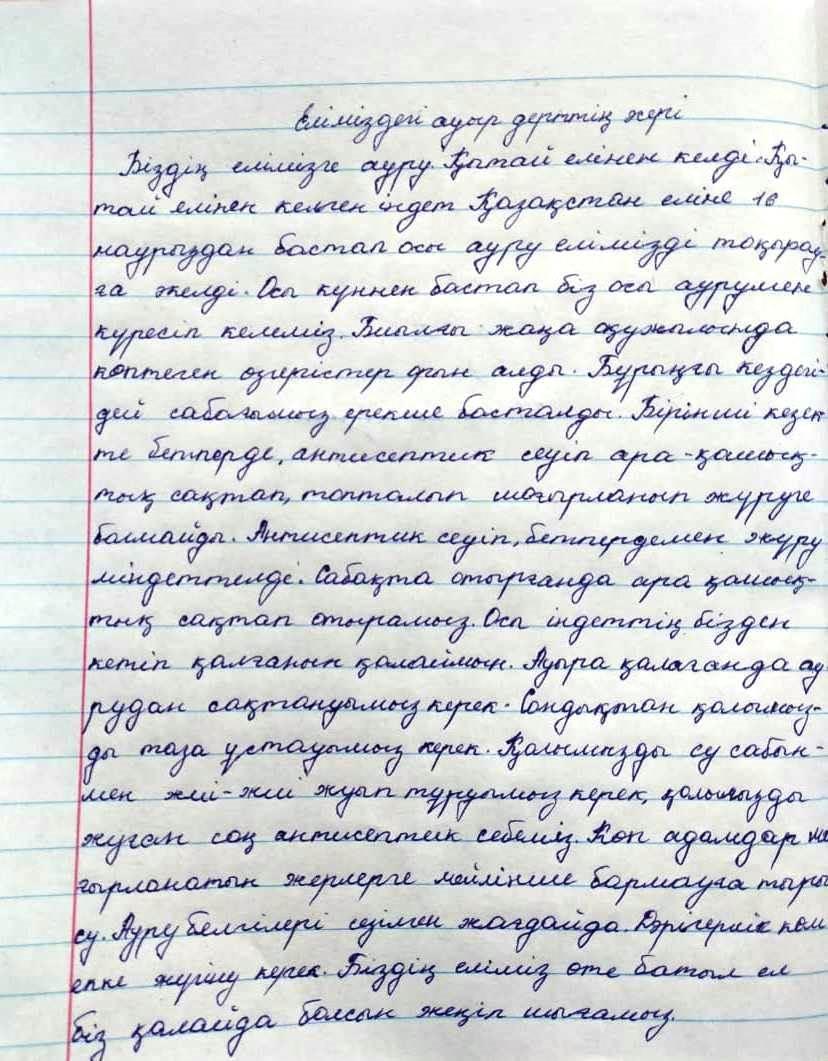 Еліміздегі ауыр дерттің жері
Біздің елімізге ауру Қытай елінен келді. Қы-
тай елінен келген індет Қазақстан еліне 16
наурыздан бастап осы ауру елімізді тоқырау-
ға әкелді. Осы күннен бастап біз осы аурумен
күресіп келеміз. Биылғы жаңа оқу жылында
көптеген өзгерістер орын алды. Бұрыңғы кездегі-
дей сабағымыз ерекше басталды. Бірінші кезек-
те бетперде, антисептик сеуіп ара-қашық-
тық сақтап, топталып шоғырланып жүруге
болмайды. Антисептик сеуіп, бетпердемен жүру
міндеттелді. Сабақта отырғанда ара қашық-
тық сақтап отырамыз. Осы індеттің бізден
кетіп қалғанын қалаймын. Ауыра қалғанда ау
рудан сақтануымыз керек. Сондықтан қолымыз-
ды таза ұстауымыз керек. Қолымызды су сабын-
мен жиі-жиі жуып тұруымыз керек, қолымызды
жуған соң антисептик себеміз. Көп адамдар шо
ғырланатын жерлерге мейлінше бармауға тыры
су. Ауру белгілері сезілген жағдайда. Дәрігерлік көм
епке жүгіну керек. Біздің еліміз өте батыл ел
біз қалайда болсын жеңіп шығамыз.